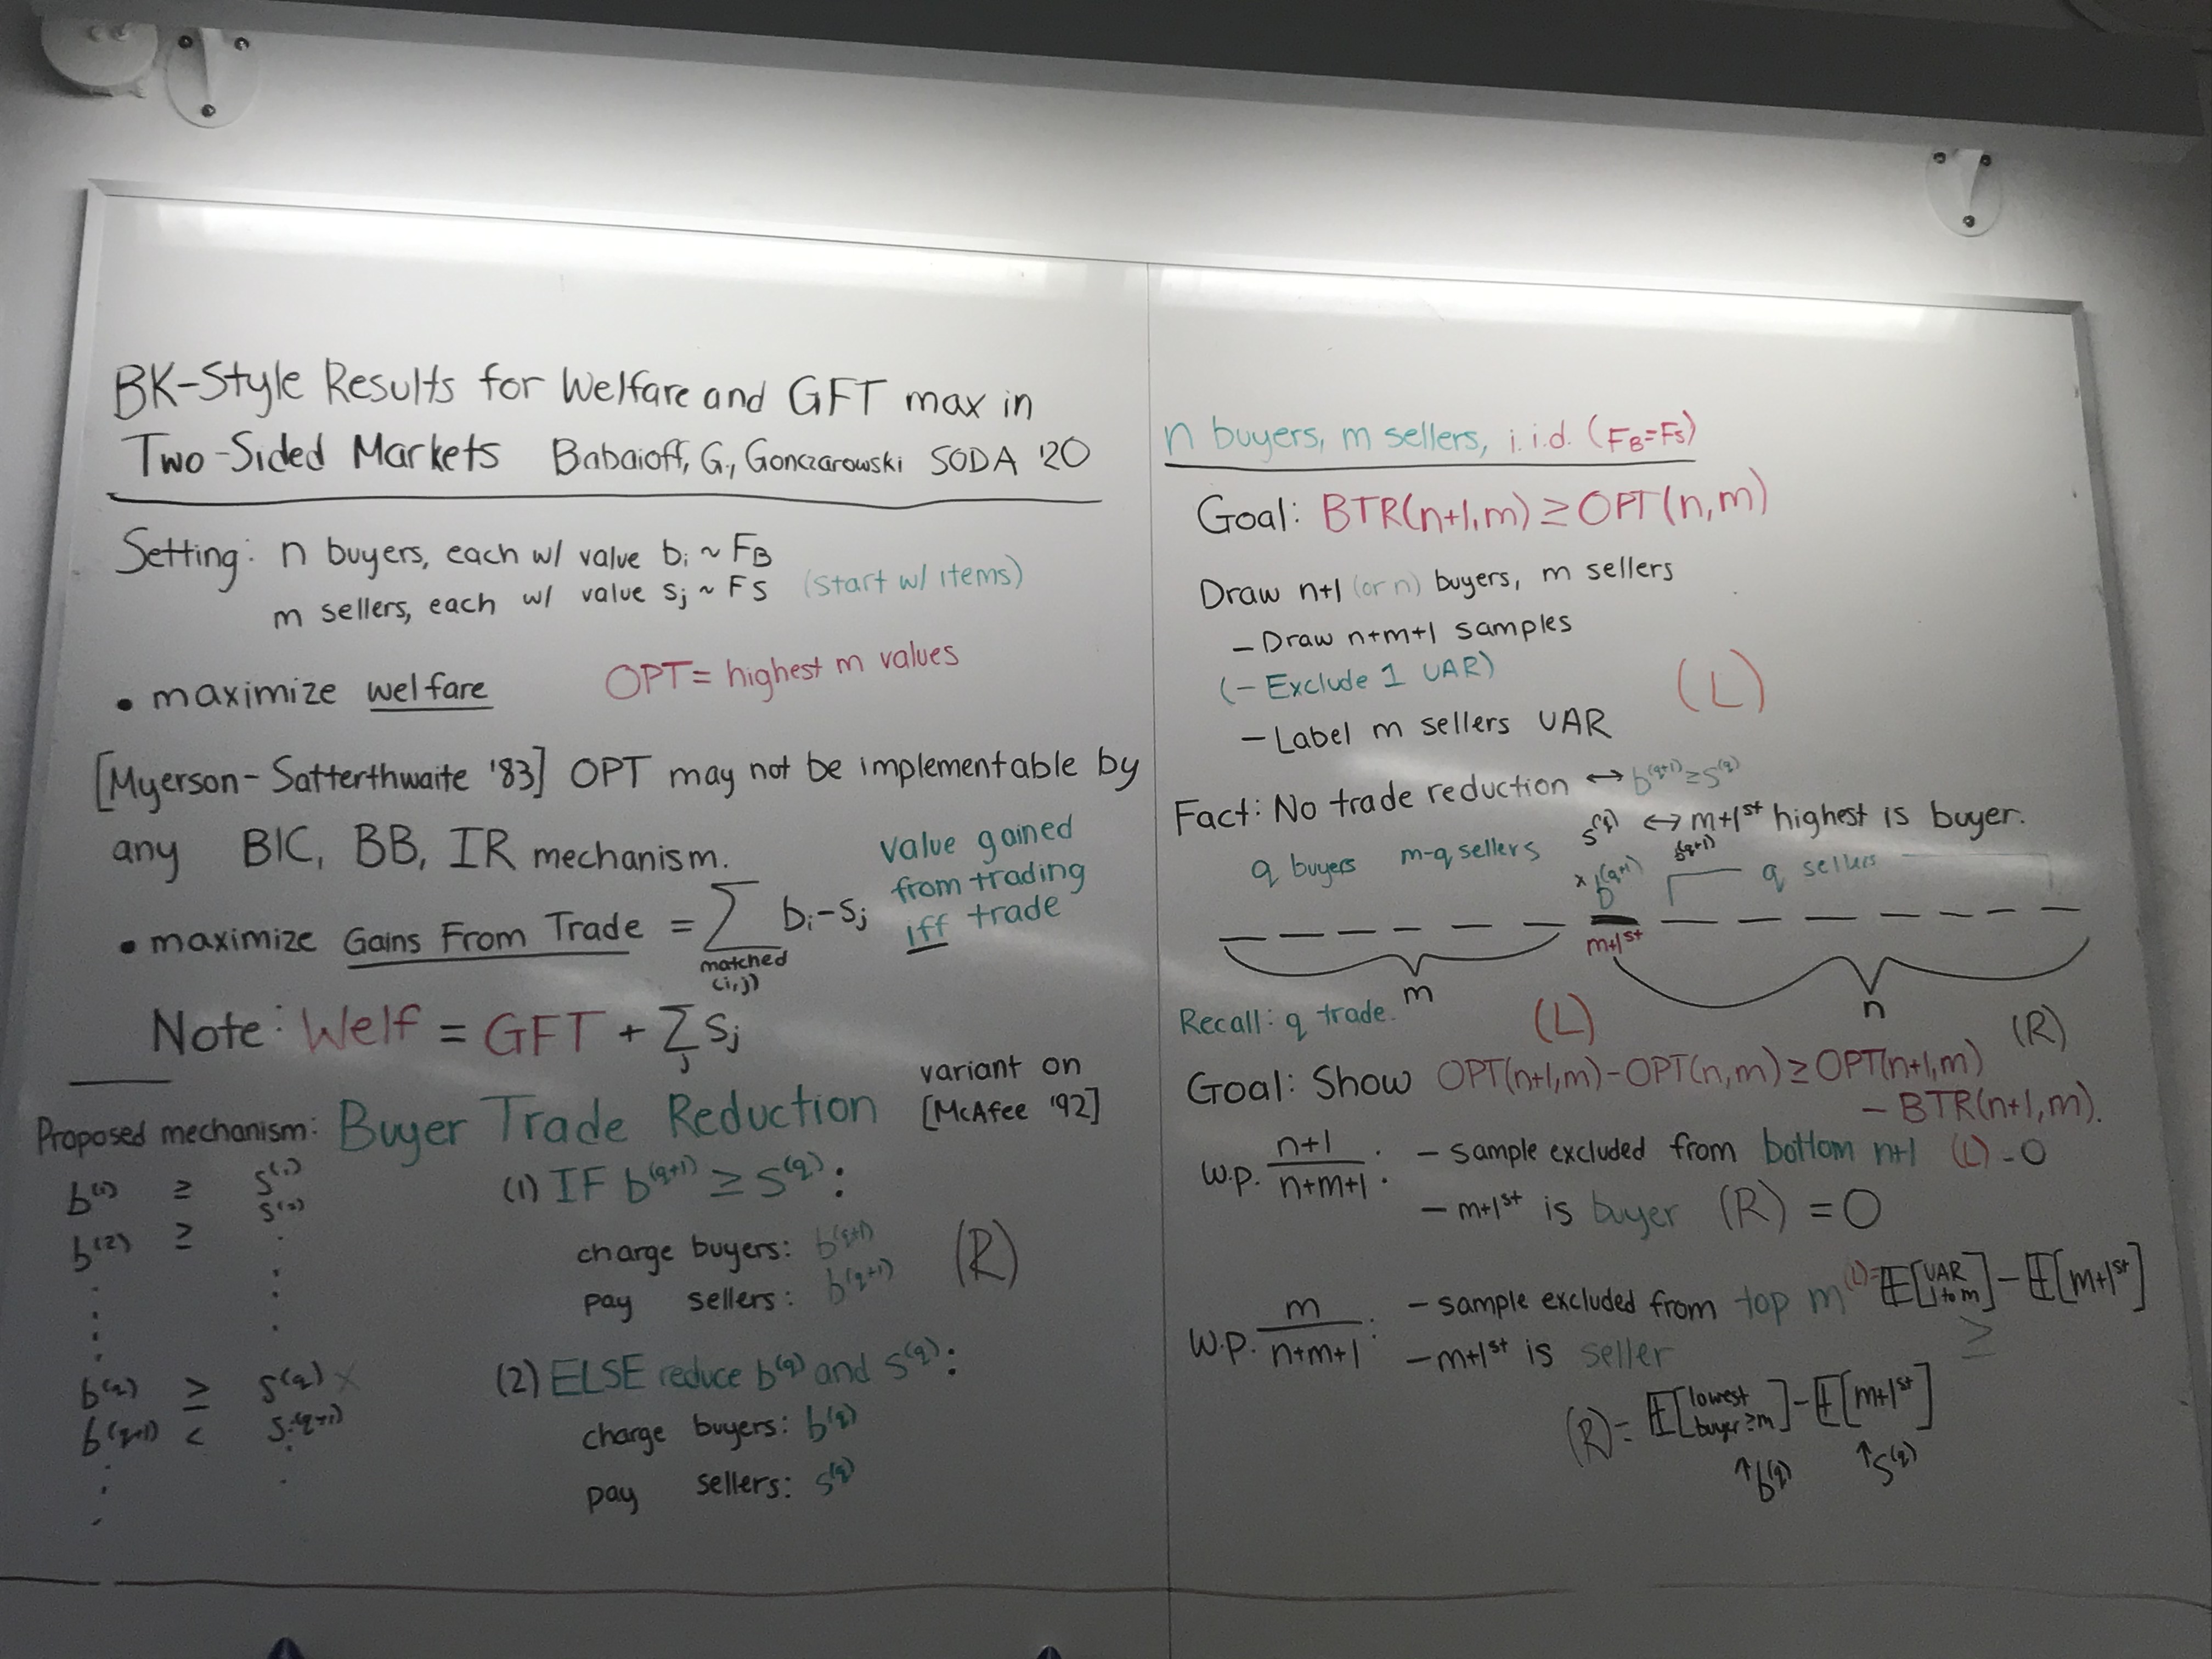 BK-Style Results for Welfare and GFT max in
Two-Sided Markets Babaioff, G., Gonczarowski SODA '20
Setting: n buyers, each w/ value bᵢ ~ F_B
m sellers, each w/ value sⱼ ~ FS (start w/ items)
• maximize welfare OPT = highest m values
[Myerson-Satterthwaite '83] OPT may not be implementable by
any BIC, BB, IR mechanism.
• maximize Gains From Trade = ∑ bᵢ - sⱼ
matched
(i,j)
value gained
from trading
iff trade
Note: Welf = GFT + ∑ⱼ sⱼ
Proposed mechanism: Buyer Trade Reduction
variant on
[McAfee '92]
b⁽¹⁾ ≥ s⁽¹⁾
b⁽²⁾ ≥ s⁽²⁾
b^(q) ≥ s^(q) x
b^(q+1) < s^(q+1)
(1) IF b^(q+1) ≥ s^(q):
charge buyers: b^(q+1)
pay sellers: b^(q+1)
(R)
(2) ELSE reduce b^(q) and s^(q):
charge buyers: b^(q)
pay sellers: s^(q)
n buyers, m sellers, i.i.d. (F_B=F_S)
Goal: BTR(n+1,m) ≥ OPT(n,m)
Draw n+1 (or n) buyers, m sellers
- Draw n+m+1 samples
(- Exclude 1 UAR)
- Label m sellers UAR
(L)
Fact: No trade reduction ↔ b^(q+1) ≥ s^(q)
s^(q) ↔ m+1st highest is buyer.
b^(q+1)
q buyers m-q sellers
x b^(q+1)
q sellers
m+1st
m
n
Recall: q trade.
(L) (R)
Goal: Show OPT(n+1,m) - OPT(n,m) ≥ OPT(n+1,m)
- BTR(n+1,m).
w.p. n+1/n+m+1: - sample excluded from bottom n+1 (L) = 0
- m+1st is buyer (R) = 0
w.p. m/n+m+1: - sample excluded from top m (L) = E[UAR to m] - E[m+1st]
- m+1st is seller
≥
(R) = E[lowest buyer ≥ m] - E[m+1st]
↑b^(q) ↑s^(q)